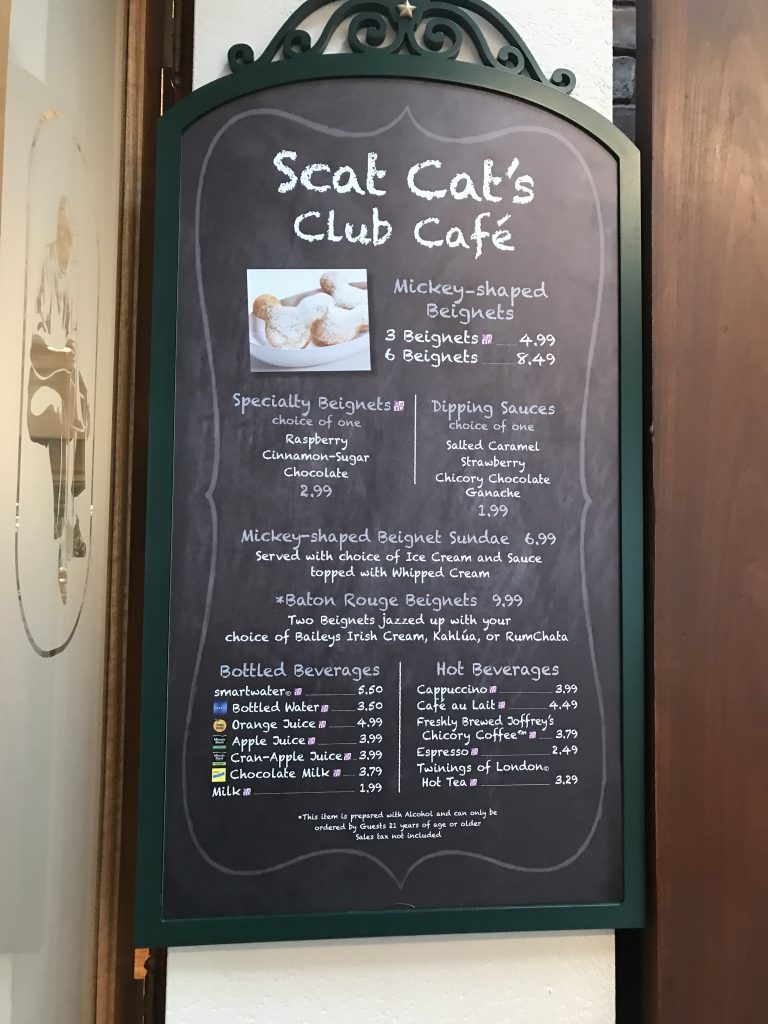 Scat Cat's
Club Café
Mickey-shaped
Beignets
3 Beignets 4.99
6 Beignets 8.49
Specialty Beignets
choice of one
Raspberry
Cinnamon-Sugar
Chocolate
2.99
Dipping Sauces
choice of one
Salted Caramel
Strawberry
Chicory Chocolate
Ganache
1.99
Mickey-shaped Beignet Sundae 6.99
Served with choice of Ice Cream and Sauce
topped with Whipped Cream
*Baton Rouge Beignets 9.99
Two Beignets jazzed up with your
choice of Baileys Irish Cream, Kahlúa, or RumChata
Bottled Beverages
smartwater® 5.50
Bottled Water 3.50
Orange Juice 4.99
Apple Juice 3.99
Cran-Apple Juice 3.99
Chocolate Milk 3.79
Milk 1.99
Hot Beverages
Cappuccino 3.99
Café au Lait 4.49
Freshly Brewed Joffrey's
Chicory Coffee™ 3.79
Espresso 2.49
Twinings of London®
Hot Tea 3.29
*This item is prepared with Alcohol and can only be
ordered by Guests 21 years of age or older
Sales tax not included